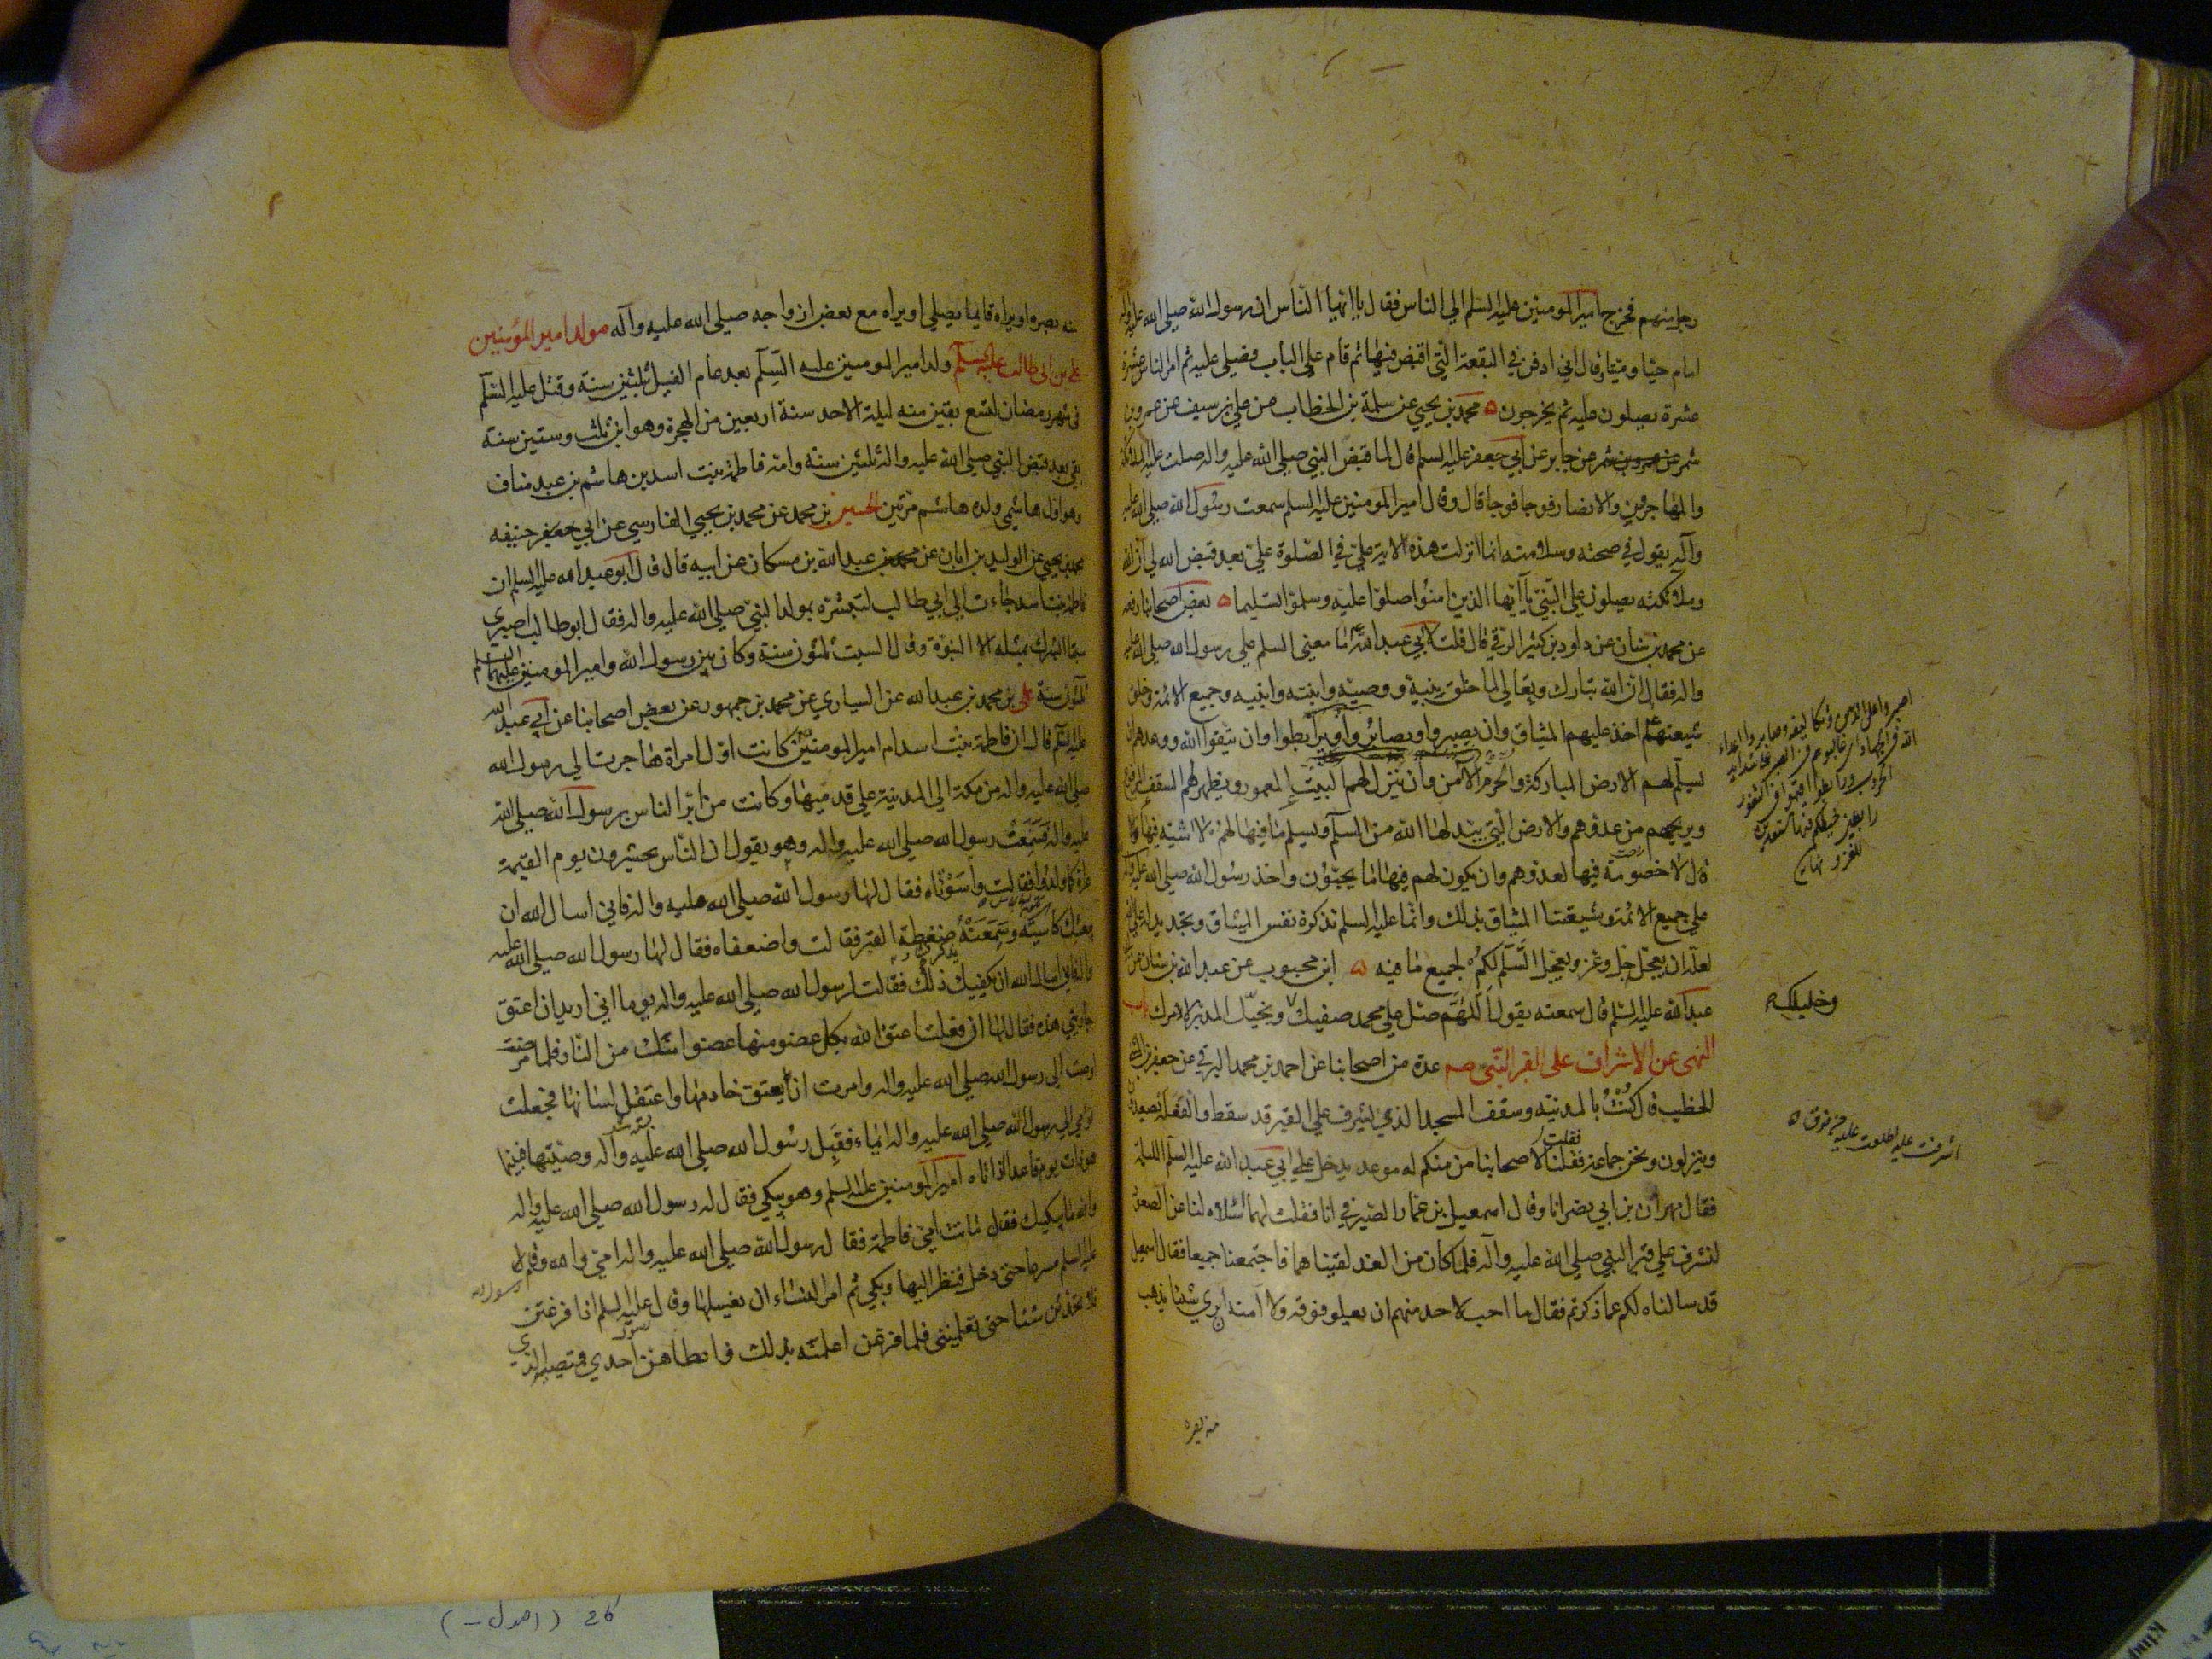 رجل منهم فخرج امير المومنين عليه السلم الي الناس فقال يا ايها الناس ان رسول الله صلي الله عليه واله
امام حيا وميتا وقال اني ادفن في البقعة التي اقبض فيها ثم قام علي الباب فصلي عليه ثم امر الناس عشرة
عشرة يصلون عليه ثم يخرجون ٥ محمد بن يحيي عن سلمة بن الخطاب عن علي بن سيف عن عمرو بن
شمر عن جابر عن ابي جعفر عليه السلم قال لما قبض النبي صلي الله عليه واله صلت عليه الملائكة
والمهاجرين والانصار فوجا فوجا قال وقال امير المومنين عليه السلم سمعت رسول الله صلي الله عليه
وآله يقول في صحته وسلامته انما انزلت هذه الاية علي في الصلوة علي بعد قبض الله لي ان الله
وملائكته يصلون علي النبي يا ايها الذين امنوا صلوا عليه وسلموا تسليما ٥ بعض اصحابنا رفعه
عن محمد بن سنان عن داود بن كثير الرقي قال قلت لابي عبد الله ما معني السلم علي رسول الله صلي الله عليه
واله فقال ان الله تبارك وتعالي لما خلق نبيه ووصيه وابنته وابنيه وجميع الائمة وخلق
شيعتهم اخذ عليهم الميثاق وان يصبروا ويصابروا ويرابطوا وان يتقوا الله ووعدهم ان
يسلم لهم الارض المباركة والحرم الآمن وان ينزل لهم البيت المعمور ويظهر لهم السقف المرفوع
ويريحهم من عدوهم والارض التي يبدلها الله من السلم ويسلم ما فيها لهم لا شية فيها قال
لا خصومة فيها لعدوهم وان يكون لهم فيها ما يحبون واخذ رسول الله صلي الله عليه وآله
علي جميع الائمة وشيعتنا الميثاق بذلك وانما عليه السلم تذكرة نفس الميثاق وتجديد له علي الله
لعله ان يعجله جل وعز ويعجل السلم لكم لجميع ما فيه ٥ ابن محبوب عن عبد الله بن سنان عن ابي
عبد الله عليه السلم قال سمعته يقول اللهم صل علي محمد صفيك ونجيك المدبر لامرك باب
النهي عن الاشراف علي القبر النبي صم عدة من اصحابنا عن احمد بن محمد البرقي عن جعفر بن المثني
الخطيب قال كنت بالمدينة وسقف المسجد الذي يشرف علي القبر قد سقط والفعلة يصعدون
وينزلون ونحن جماعة فقلت لاصحابنا من منكم له موعد يدخل علي ابي عبد الله عليه السلم الليلة
فقال مهران بن ابي بصر انا وقال اسمعيل بن عمار الصيرفي انا فقلت لهما اسئلاه لنا عن الصعود
لنشرف علي قبر النبي صلي الله عليه وآله فلما كان من الغد لقيناهما فاجتمعنا جميعا فقال اسمعيل
قد سالناه لكم عما ذكرتم فقال ما احب لاحد منهم ان يعلو فوقه ولا آمنه ان يري شيئا يذهب
منه بصره
وخليلك
اشرفت عليه اطلعت عليه من فوق ٥
منه بصره او يراه قايما يصلي او يراه مع بعض ازواجه صلي الله عليه وآله مولد امير المؤمنين
علي بن ابي طالب عليه السلم ولد امير المومنين عليه السلم بعد عام الفيل بثلثين سنة وقتل عليه السلم
في شهر رمضان لتسع بقين منه ليلة الاحد سنة اربعين من الهجرة وهو ابن ثلث وستين سنة
بقي بعد قبض النبي صلي الله عليه واله ثلثين سنة وامه فاطمة بنت اسد بن هاشم بن عبد مناف
وهو اول هاشمي ولده هاشم مرتين الحسين بن محمد عن محمد بن يحيي الفارسي عن ابي حنيفه
محمد بن يحيي عن الوليد بن ابان عن محمد بن عبد الله بن مسكان عن ابيه قال قال ابو عبد الله عليه السلم ان
فاطمة بنت اسد جاءت الي ابي طالب لتبشره بمولد النبي صلي الله عليه واله فقال ابو طالب اصبري
سبتا ابشرك بمثله الا النبوة وقال السبت ثلثون سنة وكان بين رسول الله وامير المومنين عليهما السلم
ثلثون سنة علي بن محمد بن عبد الله عن السياري عن محمد بن جمهور عن بعض اصحابنا عن ابي عبد الله
عليه السلم قال ان فاطمة بنت اسد ام امير المومنين كانت اول امراة هاجرت الي رسول الله
صلي الله عليه واله من مكة الي المدينة علي قدميها وكانت من ابر الناس برسول الله صلي الله
عليه واله فسمعت رسول الله صلي الله عليه واله وهو يقول ان الناس يحشرون يوم القيمة
عراة كما ولدوا فقالت واسوتاه فقال لها رسول الله صلي الله عليه واله فاني اسال الله ان
يبعثك كاسية وسمعته يذكر ضغطة القبر فقالت واضعفاه فقال لها رسول الله صلي الله عليه
واله فاني اسال الله ان يكفيك ذلك فقالت لرسول الله صلي الله عليه واله يوما اني اريد ان اعتق
جاريتي هذه فقال لها ان فعلت اعتق الله بكل عضو منها عضوا منك من النار فلما مرضت
اوصت الي رسول الله صلي الله عليه واله وامرت ان يعتق خادمها واعتقل لسانها فجعلت
تومي الي رسول الله صلي الله عليه واله ايماء فقبل رسول الله صلي الله عليه وآله وصيتها فبينما
هو ذات يوم قاعد اذ اتاه امير المومنين عليه السلم وهو يبكي فقال له رسول الله صلي الله عليه واله
ما يبكيك فقال ماتت امي فاطمة فقال رسول الله صلي الله عليه واله امي والله وقام
عليه السلم مسرعا حتي دخل فنظر اليها وبكي ثم امر النساء ان يغسلنها وقال عليه السلم اذا فرغتن
فلا تحدثن شيئا حتي تعلمنني فلما فرغن اعلمنه بذلك فاعطاهن احدي قميصيه الذي
رسول الله
كافي (اصول -)